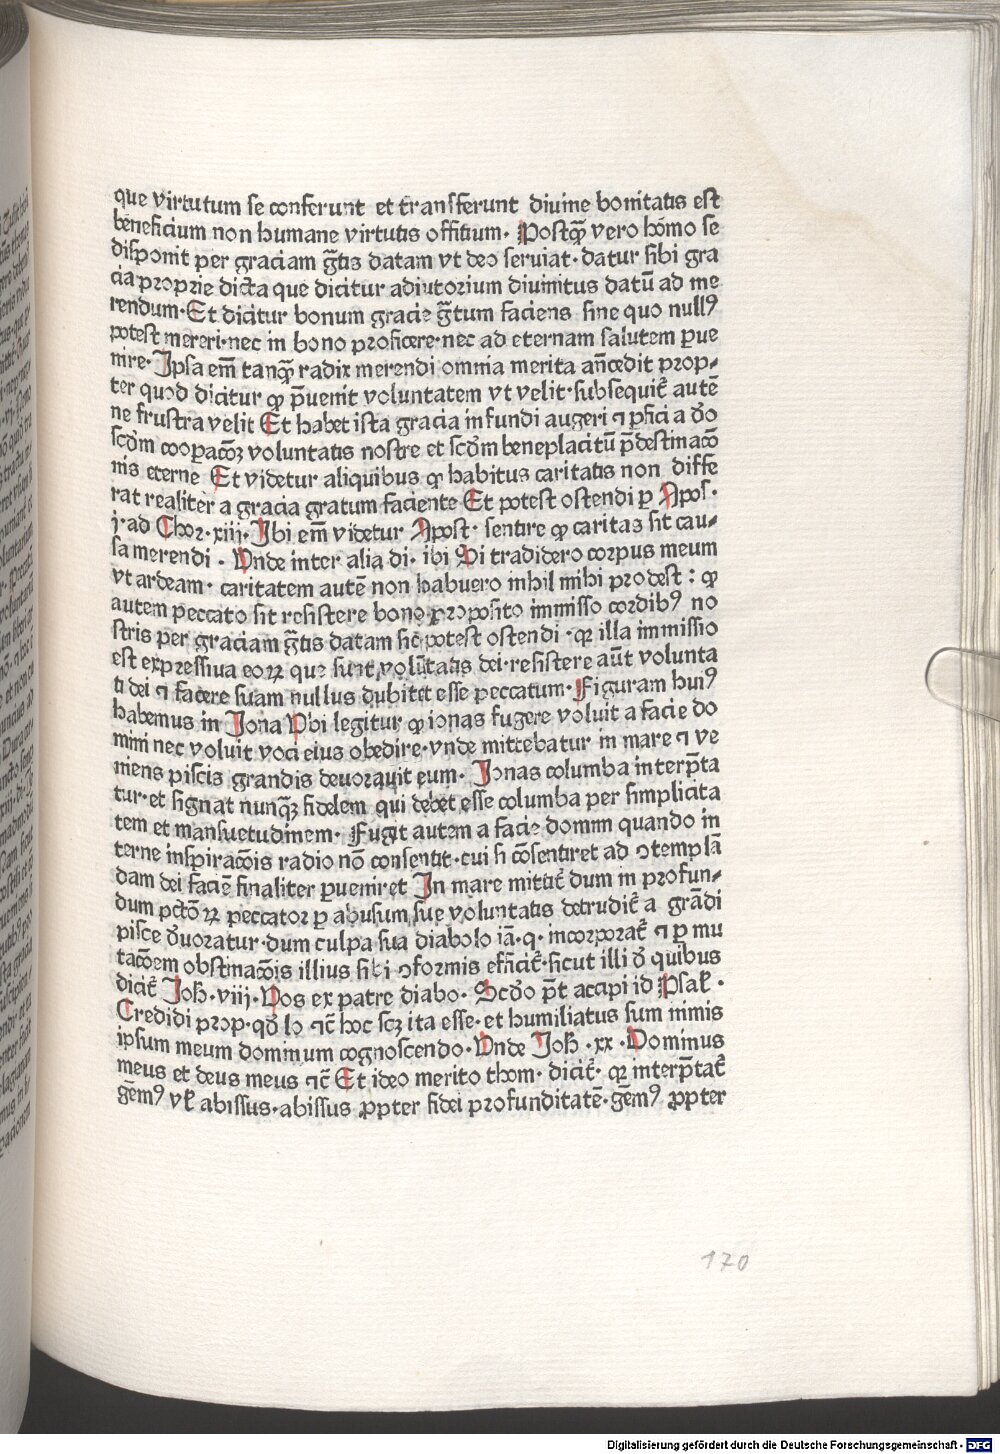 que virtutum se conferunt et transferunt divine bonitatis est
beneficium non humane virtutis offitium· Postqȝ vero homo se
disponit per graciam gr̃tis datam vt deo serviat·datur sibi gra
cia proprie dicta que dicitur adiutorium divinitus datū ad me
rendum·Et dicitur bonum gracie gr̃tum faciens sine quo nullꝰ
potest mereri·nec in bono proficere·nec ad eternam salutem ꝑue
nire· Ipsa em̄ tanqȝ radix merendi omnia merita añcedit prop-
ter quod dicitur ꝙ p̄uenit voluntatem vt velit·subsequit̃ autē
ne frustra velit Et habet ista gracia infundi augeri ⁊ ꝑfici a d̄o
scd̄m cooꝑac̄oȝ voluntatis nostre et scd̄m beneplacitū p̄destinac̄o
nis eterne Et videtur aliquibus ꝙ habitus caritatis non diffe
rat realiter a gracia gratum faciente Et potest ostendi ꝑ Apos·
j·ad Chor·xiii· Ibi em̄ videtur Apost· sentire ꝙ caritas sit cau-
sa merendi · Vnde inter alia di· ibi Si tradidero corpus meum
vt ardeam· caritatem autē non habuero nihil mihi prodest : ꝙ
autem peccato sit resistere bono proposito immisso cordibꝰ no
stris per graciam gr̃tis datam sic̄ potest ostendi ·qꝛ illa immissio
est expressiva eoꝝ que sunt volūtatis dei·resistere aūt volunta
ti dei ⁊ facere suam nullus dubitet esse peccatum· Figuram huiꝰ
habemus in Jona Vbi legitur ꝙ ionas fugere voluit a facie do
mini nec voluit voci eius obedire·vnde mittebatur in mare ⁊ ve
niens piscis grandis devoravit eum· Jonas columba interp̄ta
tur·et signat nunqȝ fidelem qui debet esse columba per simplicita
tem et mansuetudinem· Fugit autem a facie domini quando in
terne inspirac̄ois radio nō consentit·cui si cōsentiret ad ꝯtemplā
dam dei faciē finaliter ꝑueniret In mare mittit̃ dum in profun-
dum pctō ꝝ peccator ꝑ abusum sue voluntatis detrudit̃ a grādi
pisce d̄uoratur·dum culpa sua diabolo iā·q· incorporat̃ ⁊ ꝑ mu
tac̄oem obstinac̄ois illius sibi ꝯformis efficit̃·sicut illi d̄ quibus
dicit̃ Joh̄·viii·Vos ex patre diabo· Scd̄o p̄t accipi id Psal̃ ·
Credidi prop·qd̄ lo ⁊c̄ hoc scȝ ita esse·et humiliatus sum nimis
ipsum meum dominum cognoscendo·Vnde Joh̄ ·xx·Dominus
meus et deus meus ⁊c̄ Et ideo merito thom· dicit̃· qꝛ interp̄tat̃
gēmꝰ vl̃ abissus·abissus ꝓpter fidei profunditatē·gēmꝰ ꝓpter
170
Digitalisierung gefördert durch die Deutsche Forschungsgemeinschaft - DFG